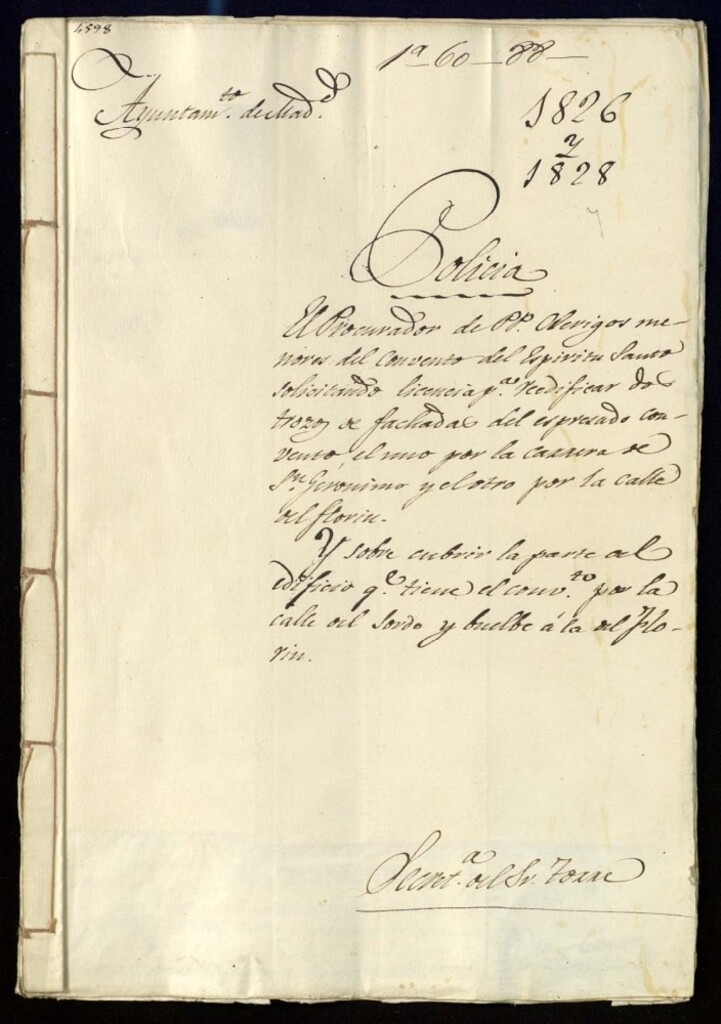 4598
1ª-60-88-
Ayuntamto. de Madd.
1826
y
1828
Policia
El Procurador de PP. Clerigos me-
nores del Convento del Espiritu Santo
solicitando licencia pª. reedificar dos
trozos de fachadas del espresado con-
vento, el uno por la carrera de
Sn. Geronimo y el otro por la calle
del florin.
Y sobre cubrir la parte del
edificio qe. tiene el convto. por la
calle del Sordo y buelbe á la del Flo-
rin.
Secretª. del Sr. Torre